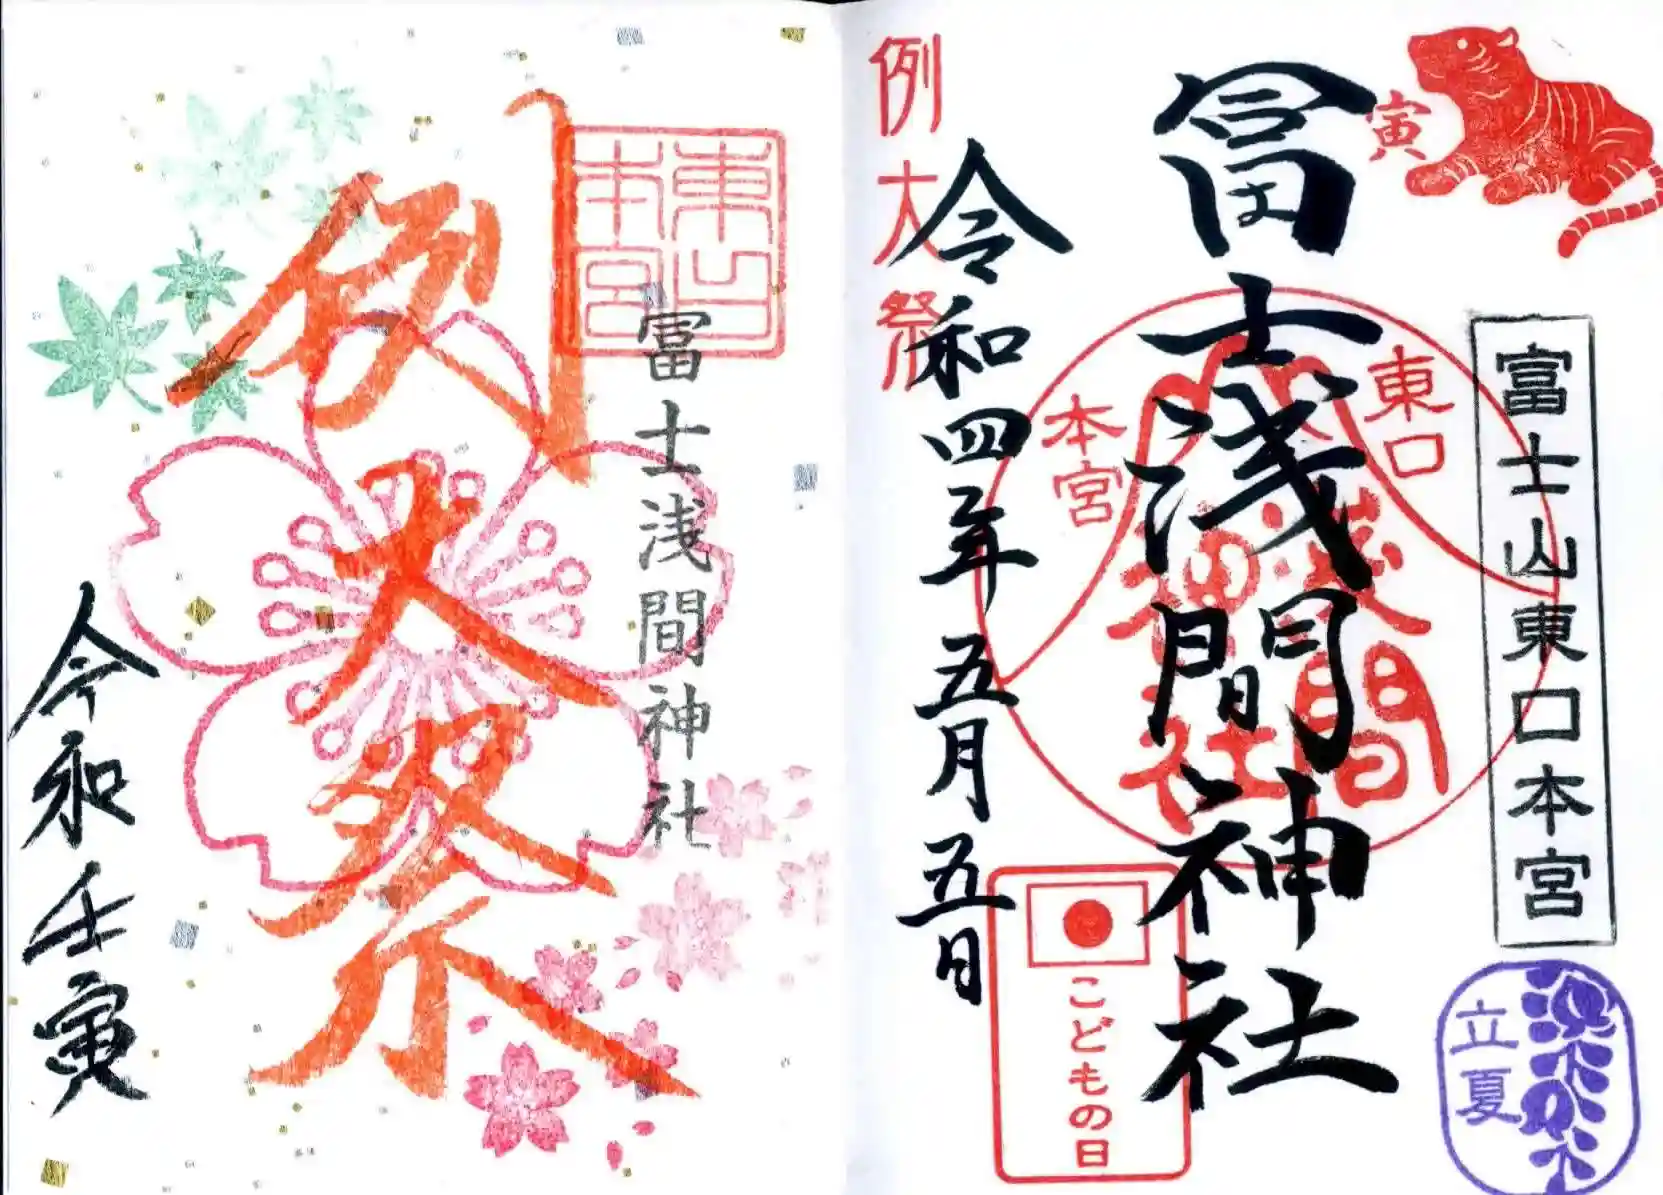 寅
富士山東口本宮
冨士浅間神社
東口
本宮
浅間
神社
例大祭
令和四年五月五日
こどもの日
立夏
冨士浅間神社
例大祭
令和壬寅